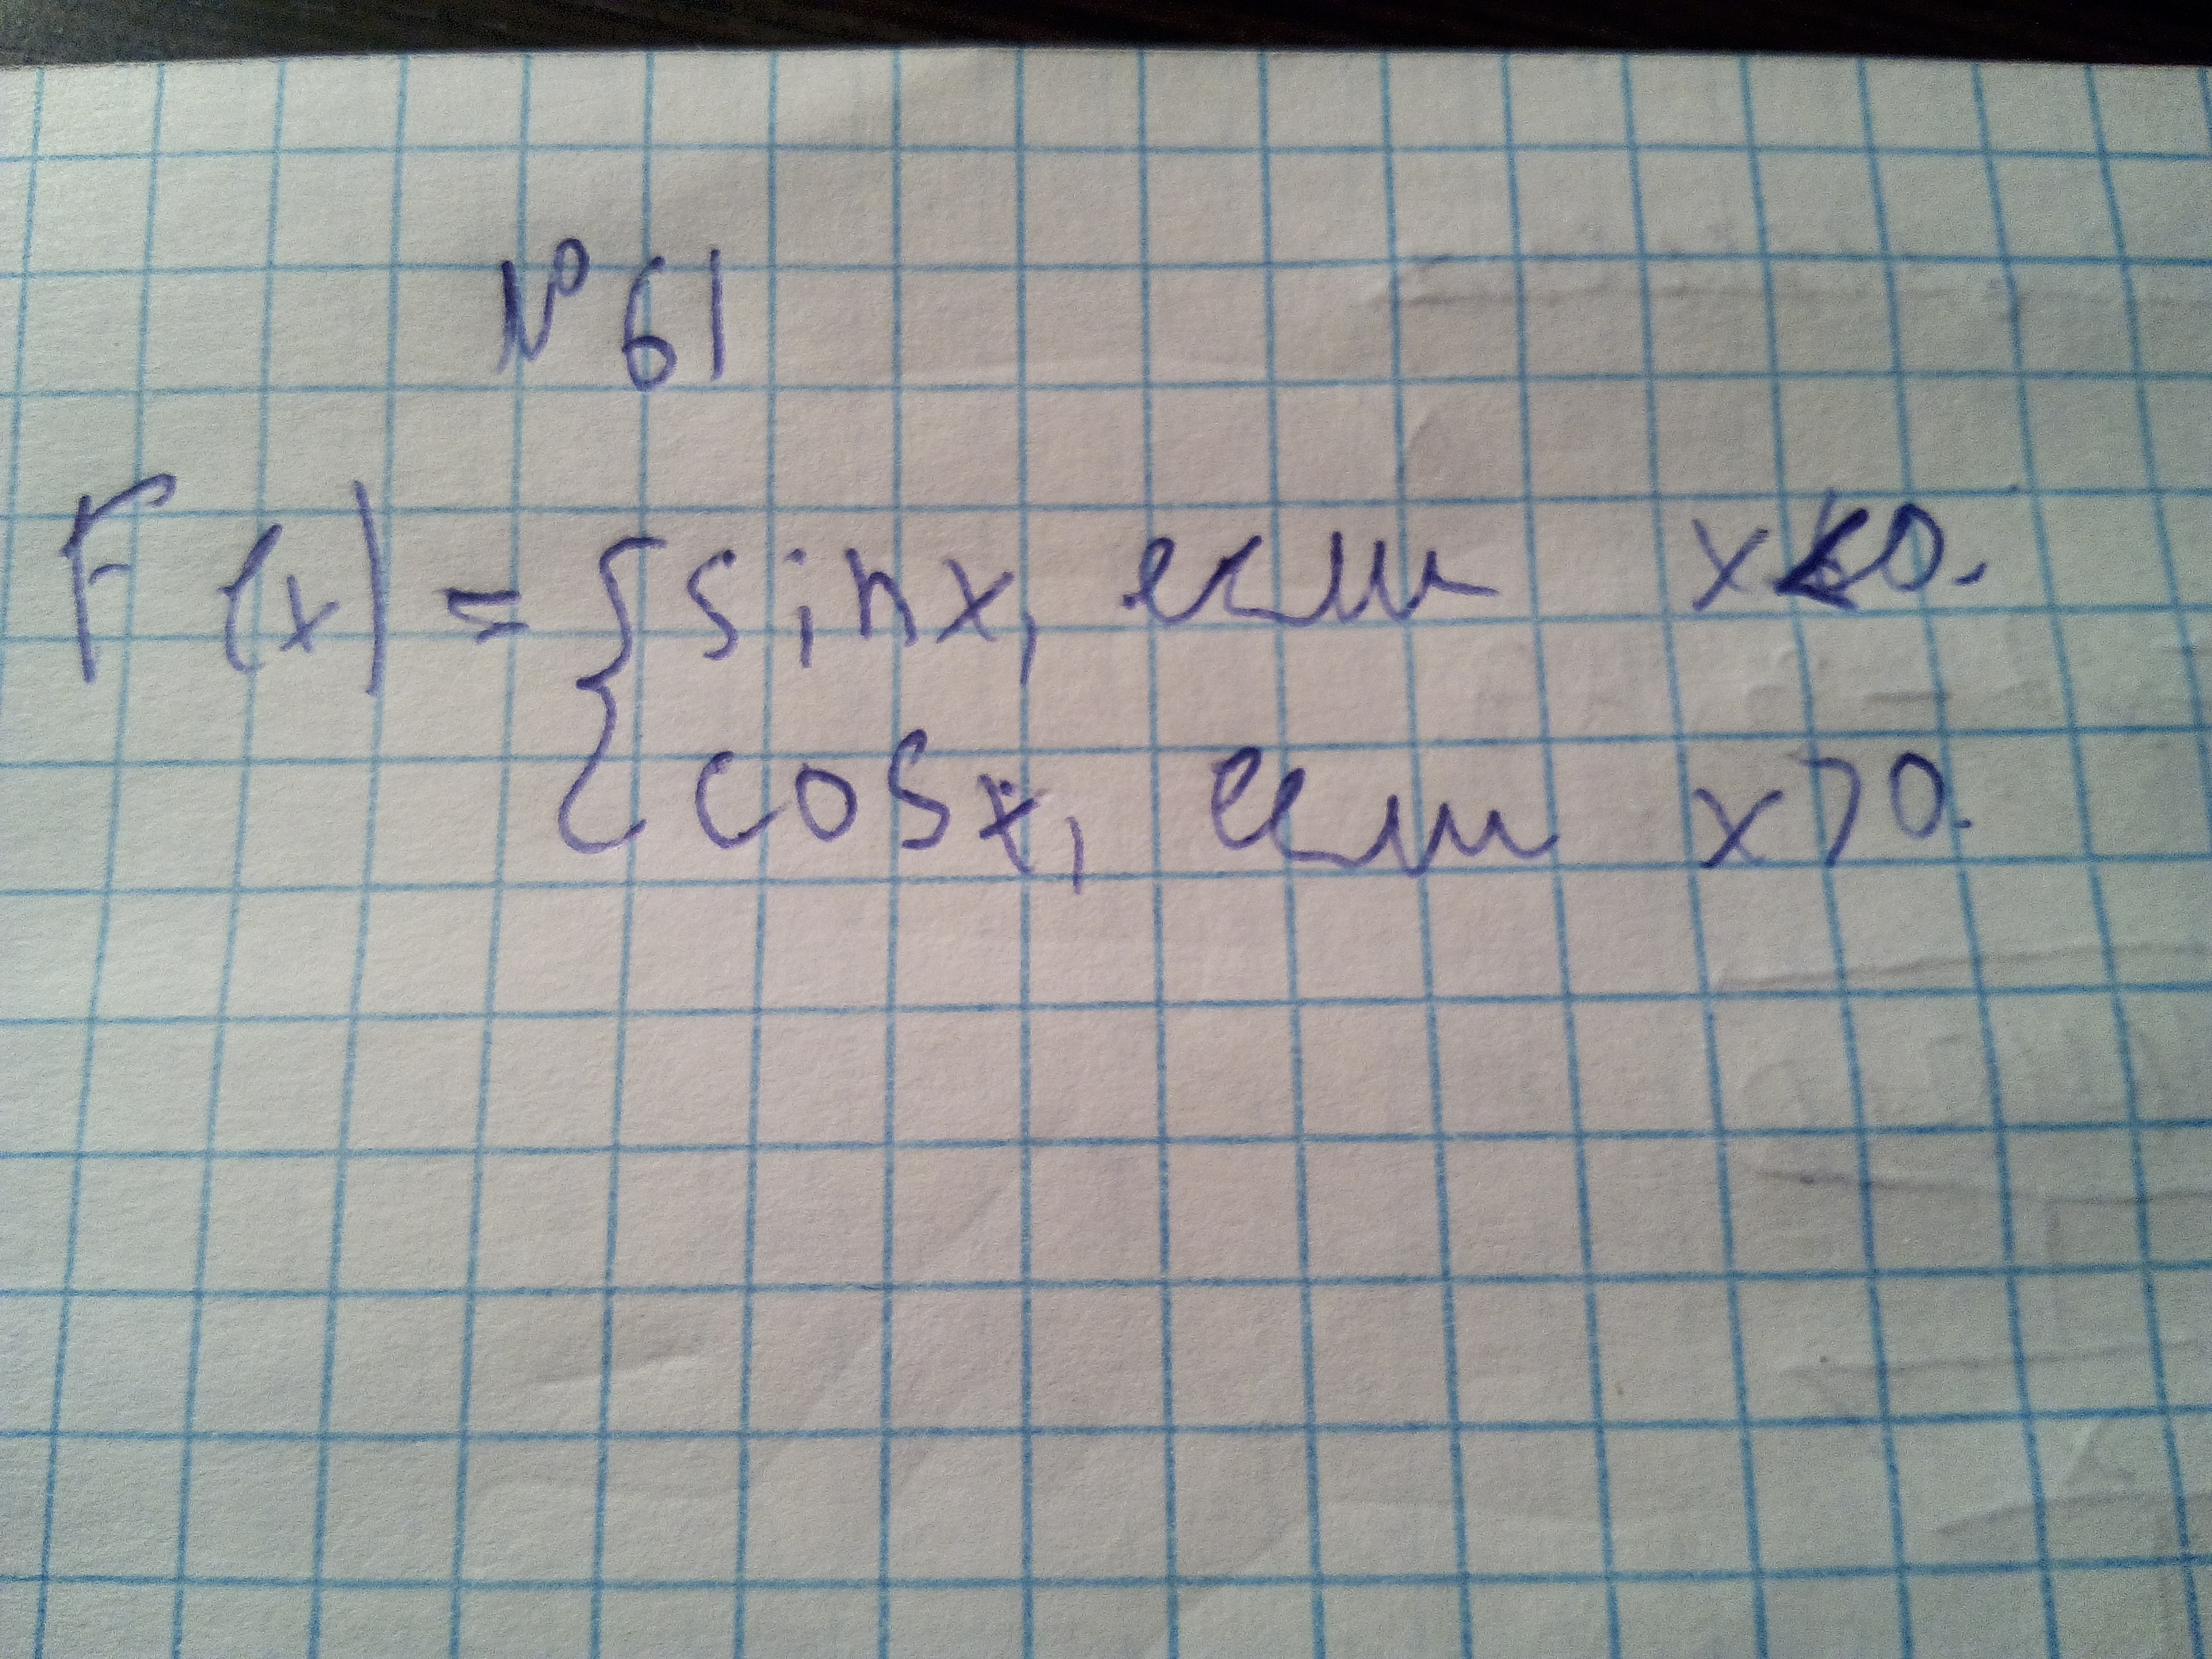 №61
F(x) = { sinx, если x<0.
cosx, если x>0.